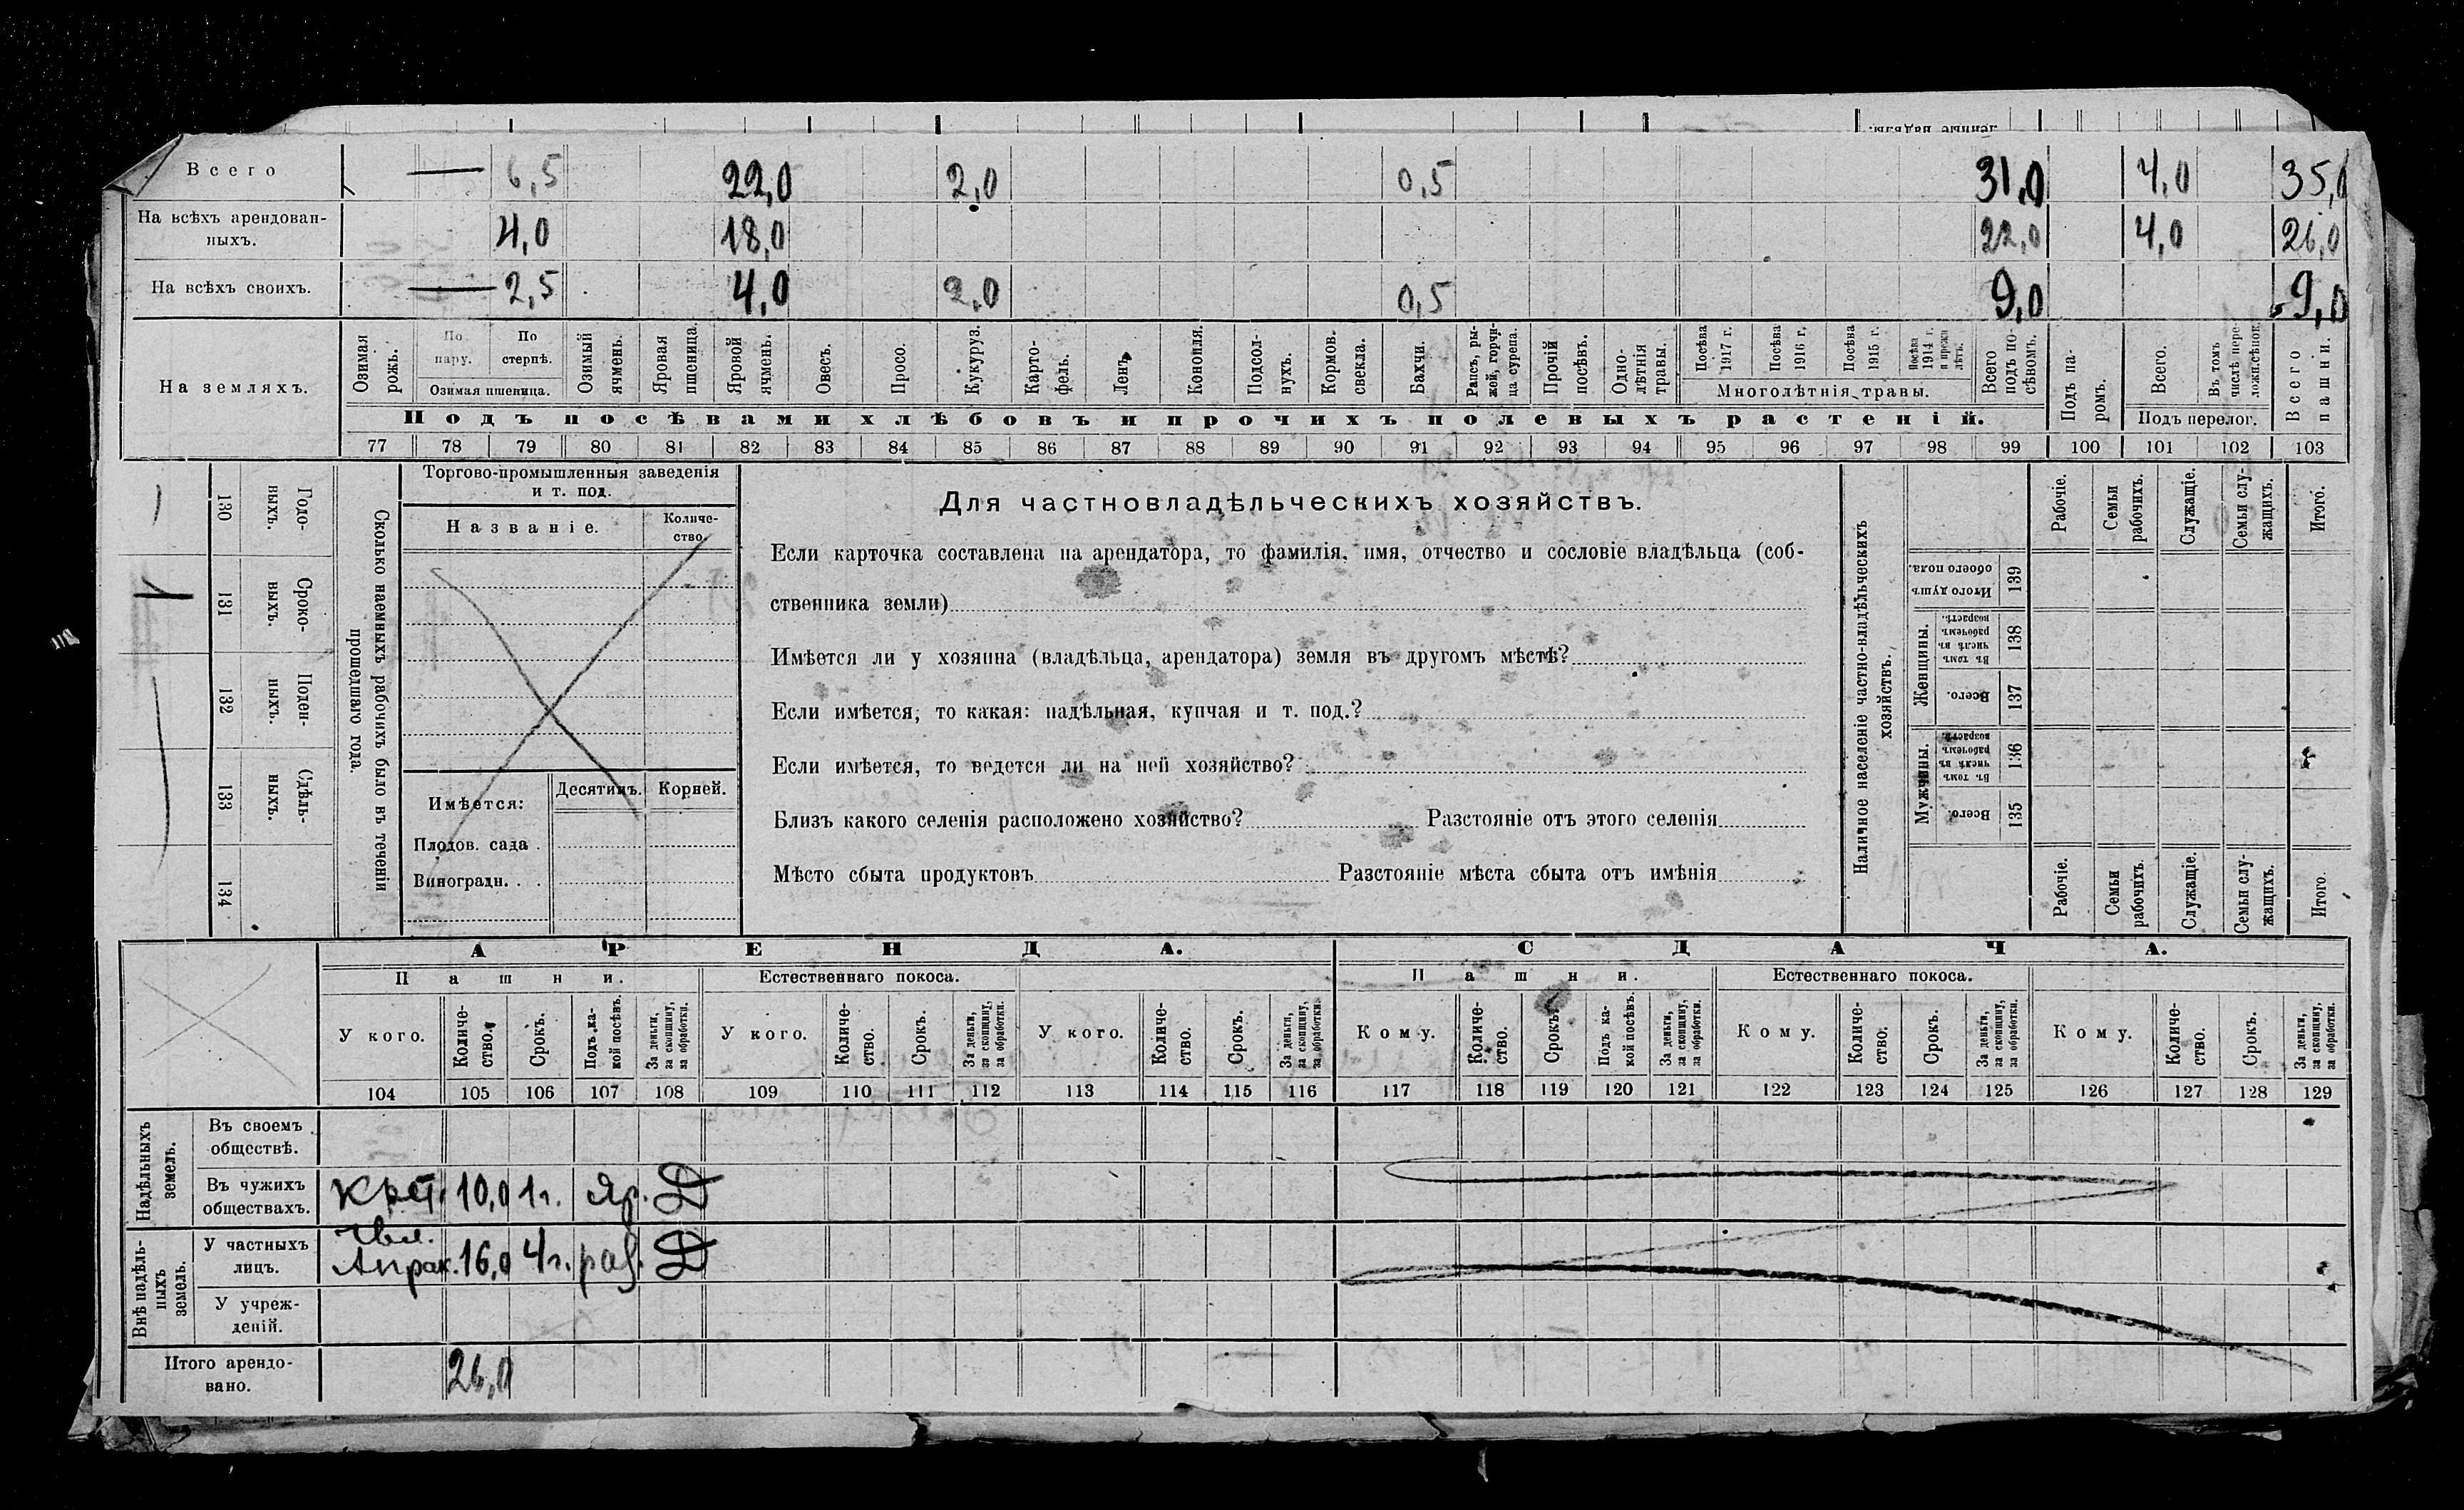 Всего — 6,5 22,0 2,0 0,5 31,0 4,0 35,0
На всѣхъ арендован-
ныхъ. 4,0 18,0 22,0 4,0 26,0
На всѣхъ своихъ. — 2,5 4,0 2,0 0,5 9,0 9,0
На земляхъ.
Озимая рожь.
По пару.
По стернѣ.
Озимая пшеница.
Озимый ячмень.
Яровая пшеница.
Яровой ячмень.
Овесъ.
Просо.
Кукуруз.
Карто-
фель.
Ленъ.
Конопля.
Подсол-
нухъ.
Кормов.
свекла.
Бахчи.
Рапсъ, ры-
жей, горчи-
ца, сурепа.
Прочій
посѣвъ.
Одно-
лѣтнія
травы.
Посѣва
1917 г.
Посѣва
1916 г.
Посѣва
1915 г.
Посѣва
1914 г.
и прежн.
лѣтъ.
Многолѣтнія травы.
Всего
подъ по-
сѣвомъ.
Подъ посѣвами хлѣбовъ и прочихъ полевыхъ растеній.
Подъ па-
ромъ.
Всего.
Въ томъ
числѣ пере-
ложн. сѣнок.
Подъ перелог.
Всего
пашни.
77 78 79 80 81 82 83 84 85 86 87 88 89 90 91 92 93 94 95 96 97 98 99 100 101 102 103
Годо-
выхъ.
130
Сроко-
ныхъ.
131
1
Поден-
ныхъ.
132
Сдѣль-
ныхъ.
133
134
Сколько наемныхъ рабочихъ было въ теченіи
прошедшаго года.
Торгово-промышленныя заведенія
и т. под.
Названіе.
Количе-
ство.
Имѣется:
Десятинъ.
Корней.
Плодов. сада .
Виноградн. . .
Для частновладѣльческихъ хозяйствъ.
Если карточка составлена на арендатора, то фамилія, имя, отчество и сословіе владѣльца (соб-
ственника земли)
Имѣется ли у хозяина (владѣльца, арендатора) земля въ другомъ мѣстѣ?
Если имѣется, то какая: надѣльная, купчая и т. под.?
Если имѣется, то ведется ли на ней хозяйство?
Близъ какого селенія расположено хозяйство? Разстояніе отъ этого селенія
Мѣсто сбыта продуктовъ Разстояніе мѣста сбыта отъ имѣнія
Наличное населеніе частно-владѣльческихъ
хозяйствъ.
Рабочіе.
Семьи
рабочихъ.
Служащіе.
Семьи слу-
жащихъ.
Итого.
Итого душъ
обоего пола.
139
Женщины.
Въ томъ
числѣ въ
рабочемъ
возрастѣ.
138
Всего.
137
Мужчины.
Въ томъ
числѣ въ
рабочемъ
возрастѣ.
136
Всего.
135
Рабочіе.
Семьи
рабочихъ.
Служащіе.
Семьи слу-
жащихъ.
Итого.
АРЕНДА.
СДАЧА.
Пашни.
Естественнаго покоса.
Пашни.
Естественнаго покоса.
У кого.
Количе-
ство.
Срокъ.
Подъ ка-
кой посѣвъ.
За деньги,
за скопщину,
за обработки.
У кого.
Количе-
ство.
Срокъ.
За деньги,
за скопщину,
за обработки.
У кого.
Количе-
ство.
Срокъ.
За деньги,
за скопщину,
за обработки.
Кому.
Количе-
ство.
Срокъ.
Подъ ка-
кой посѣвъ.
За деньги,
за скопщину,
за обработки.
Кому.
Количе-
ство.
Срокъ.
За деньги,
за скопщину,
за обработки.
Кому.
Количе-
ство.
Срокъ.
За деньги,
за скопщину,
за обработки.
104 105 106 107 108 109 110 111 112 113 114 115 116 117 118 119 120 121 122 123 124 125 126 127 128 129
Надѣльныхъ
земель.
Въ своемъ
обществѣ.
Въ чужихъ
обществахъ.
Крст. 10,0 1г. яр. Д
Внѣ надѣль-
ныхъ
земель.
У частныхъ
лицъ.
Апрак. 16,0 4г. раз. Д
У учреж-
деній.
Итого арендо-
вано.
26,0